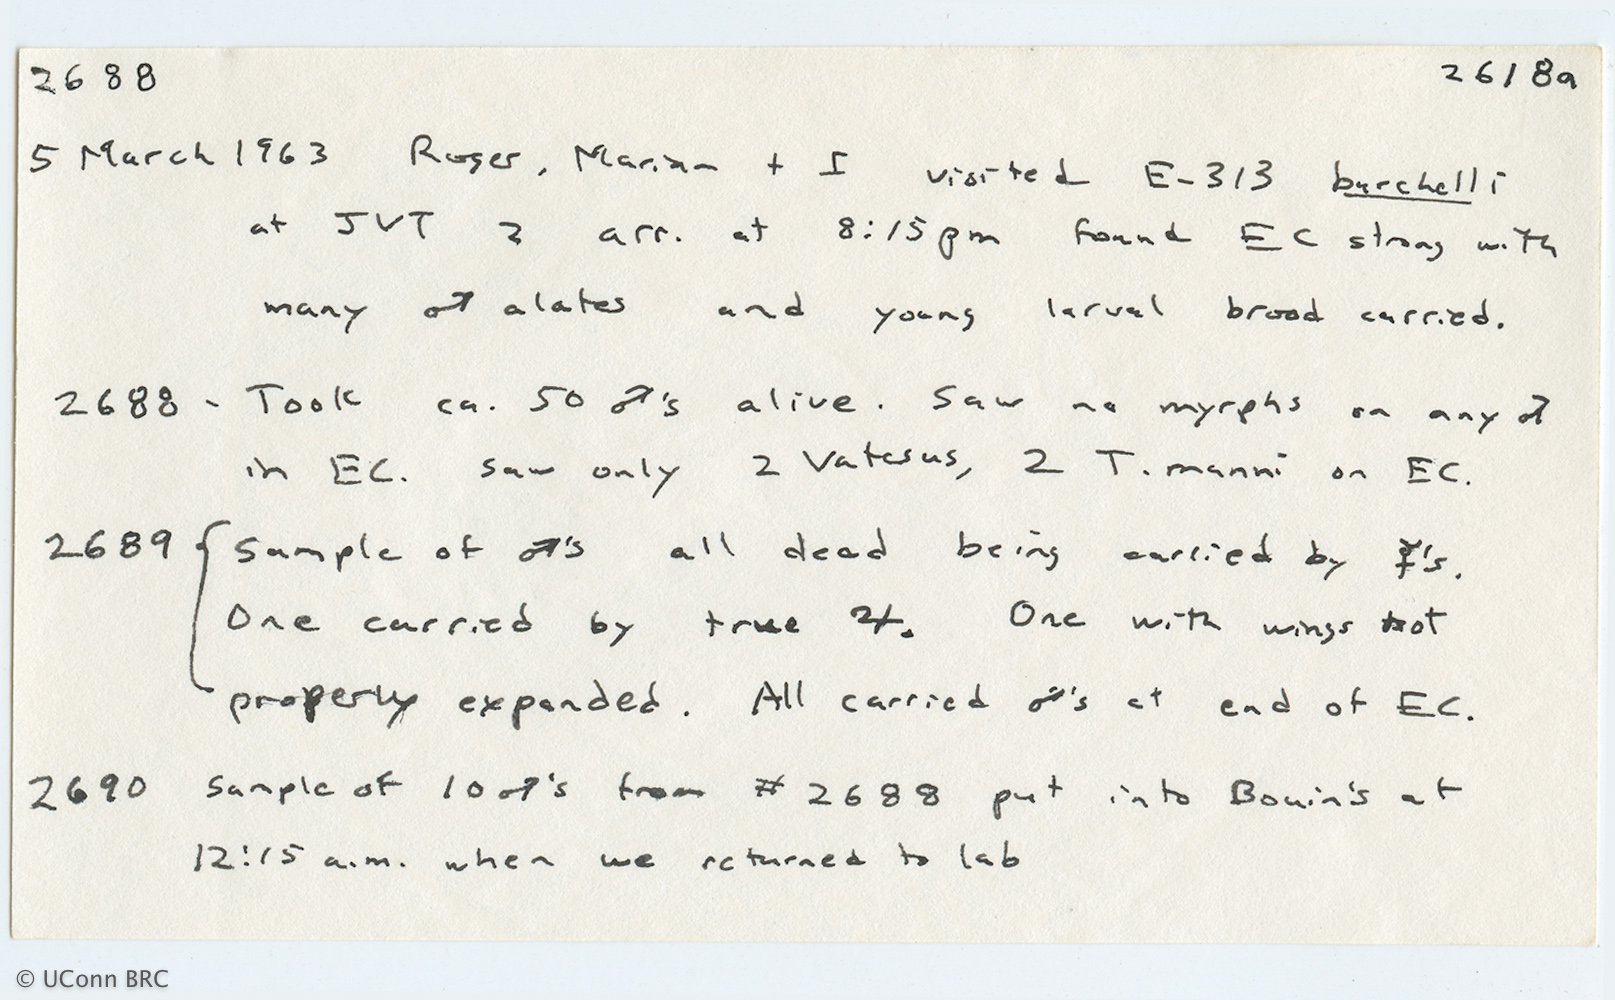 2688 2618a
5 March 1963 Roger, Marian + I visited E-313 burchelli
at JVT 2 arr. at 8:15pm found EC strong with
many ♂ alates and young larval brood carried.
2688 - Took ca. 50 ♂'s alive. Saw no myrphs on any ♂
in EC. Saw only 2 Vatesus, 2 T. manni on EC.
2689 { Sample of ♂'s all dead being carried by ☿'s.
One carried by true ♃. One with wings not
properly expanded. All carried ♂'s at end of EC.
2690 Sample of 10 ♂'s from # 2688 put into Bouin's at
12:15 a.m. when we returned to lab
© UConn BRC